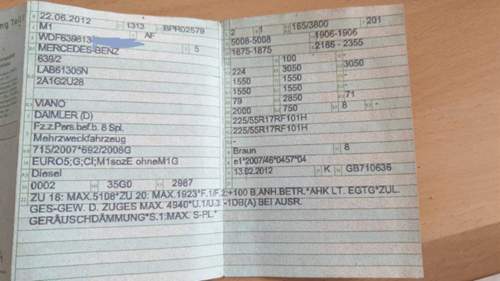 22.06.2012 1313 BPR02579
M1 AF
WDF639813
MERCEDES-BENZ 5
639/2
LAB61305N
2A1G2U28
VIANO
DAIMLER (D)
Fz.z.Pers.bef.b. 8 Spl.
Mehrzweckfahrzeug
715/2007*692/2008G
EURO5;G;CI;M1sozE ohneM1G
Diesel
0002 35G0 2987
ZU 18: MAX.5108*ZU 20: MAX.1923*F.1/F.2:+100 B.ANH.BETR.*AHK LT. EGTG*ZUL.
GES-GEW. D. ZUGES MAX. 4940*U.1/U.3: -1DB(A) BEI AUSR.
GERÄUSCHDÄMMUNG*S.1:MAX. S-PL*
2 1 165/3800 201
5008-5008 1906-1906
1875-1875 2165 - 2355
100
224 3050 3050
1550 1550 -
1550 1550 -
79 2850 71
2000 750 8 -
225/55R17RF101H
225/55R17RF101H
-
Braun 8
e1*2007/46*0457*04
13.02.2012 K GB710636